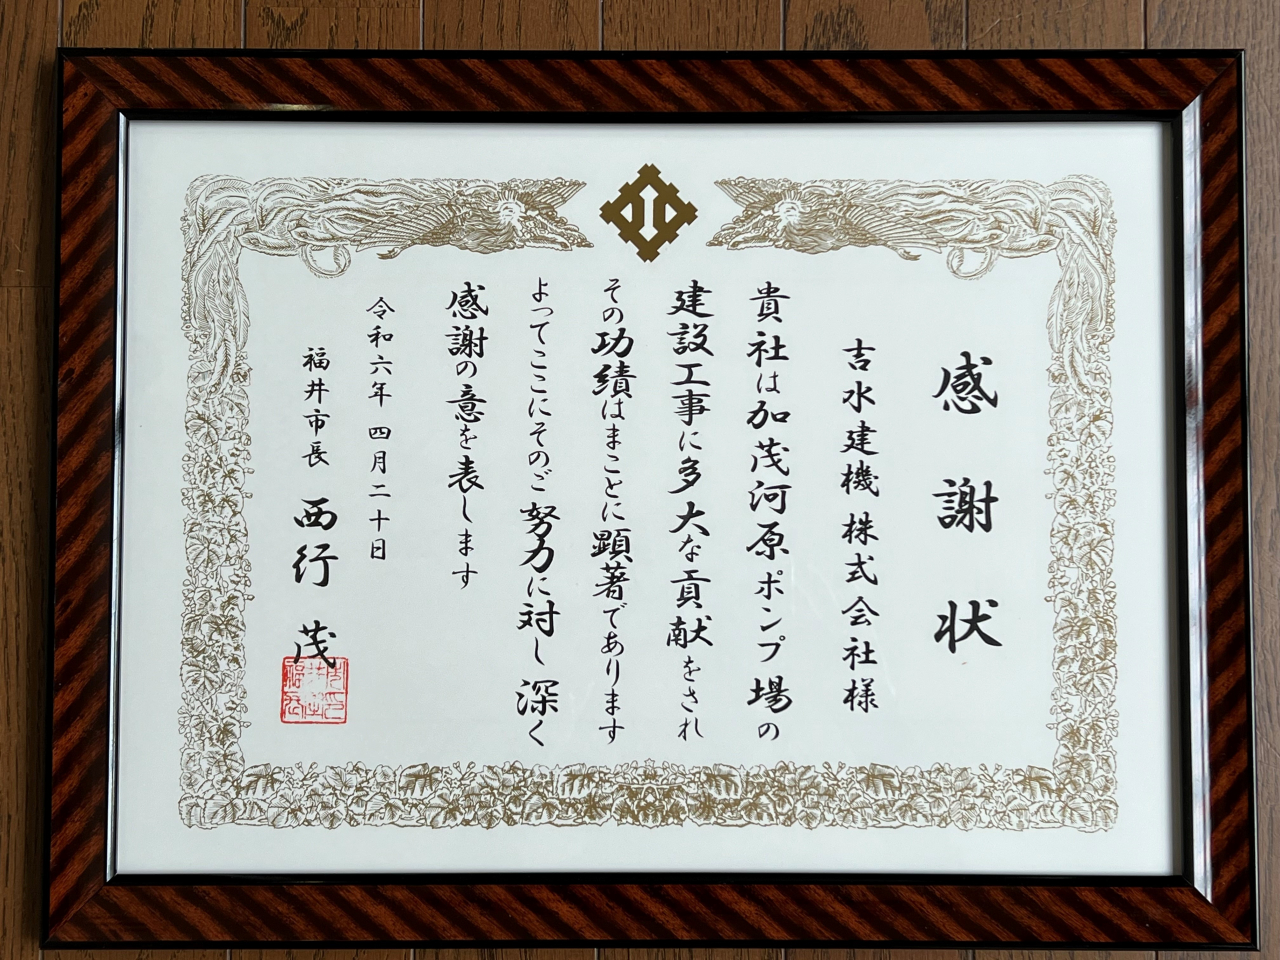 感謝状
吉水建機株式会社様
貴社は加茂河原ポンプ場の
建設工事に多大な貢献をされ
その功績はまことに顕著であります
よってここにそのご努力に対し深く
感謝の意を表します
令和六年四月二十日
福井市長 西行茂